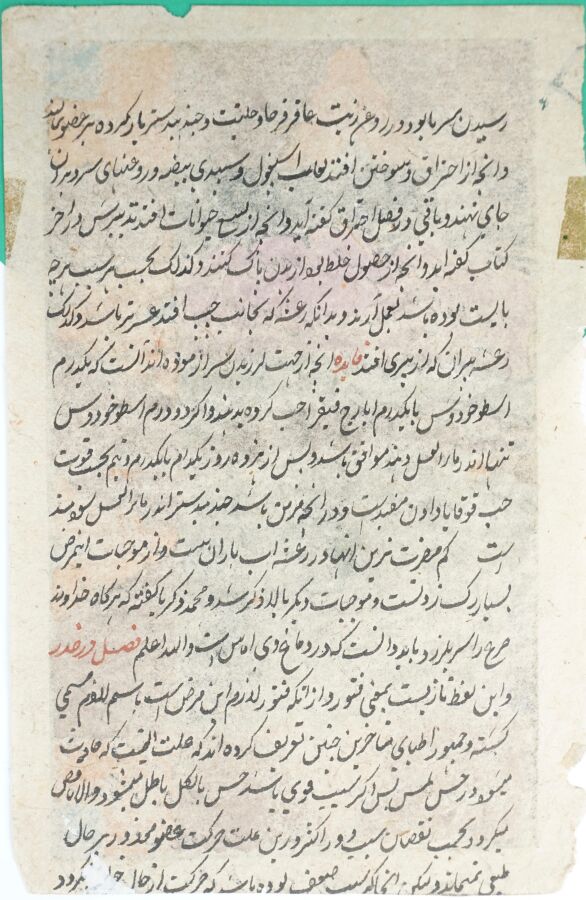 رسیدن سرما بود در روغن زیت عاقرقرحا و حلتیت و جند بیدستر بار کرده بر عضو مالند
و انچه از احتراق و سوختن افتد لعاب اسپغول و سپیدی بیضه و روغنهای سرد بر آن
جای نهند و باقی در فصل احتراق گفته آید و انچه از لسع حیوانات افتد تدبیرش در اخر
کتاب گفته اید و انچه از حصول خلط بود از بدن پاک کنند و کذلک بحسب هر سبب هر چه
بایست بوده باشد بعمل آرند و بدانکه رعشه که بجانب چپ افتد عسرتر باشد و کذلک
رعشه پیران که از پیری افتد فایده انچه از جهت لرزیدن سر ازموده اند آنست که یکدرم
اسطوخودوس با یکدرم ایارج فیقرا حب کرده بدهند و اگر دو درم اسطوخودوس
تنها اندر ماء العسل دهند موافق باشد و پس از هر ده روز یکدرم یا یکدرم و نیم بحسب قوت
حب قوقایا دادن مفیدست و در انچه مزمن باشد جند بیدستر اندر ماء العسل سودمند
است که مضرت ترین انها در رعشه اب باران است و از موجبات این مرض
بسیار ست و موجبات دیگر بالا ذکر شد و محمد ذکریا گفته که هرگاه خداوند
صرع را سر بلرزد باید دانست که در دماغ وی اماس است والله اعلم فصل در خدر
و این لفظ تازیست بمعنی فتور و از انکه فتور لازم این مرض است باسم لازم مسمی
گشته و جمهور اطبای متاخرین چنین تعریف کرده اند که علت الیتیست که حادث
میشود در حس لمس پس اگر سبب قوی باشد حس بالکل باطل میشود و الا ناقص
میگردد بحسب نقصان سبب و در اکثر درین علت حرکت عضو مخدور بر حال
طبعی نمیماند و لیکن انجا که سبب ضعیف بوده باشد که حرکت از حال خود نگردد